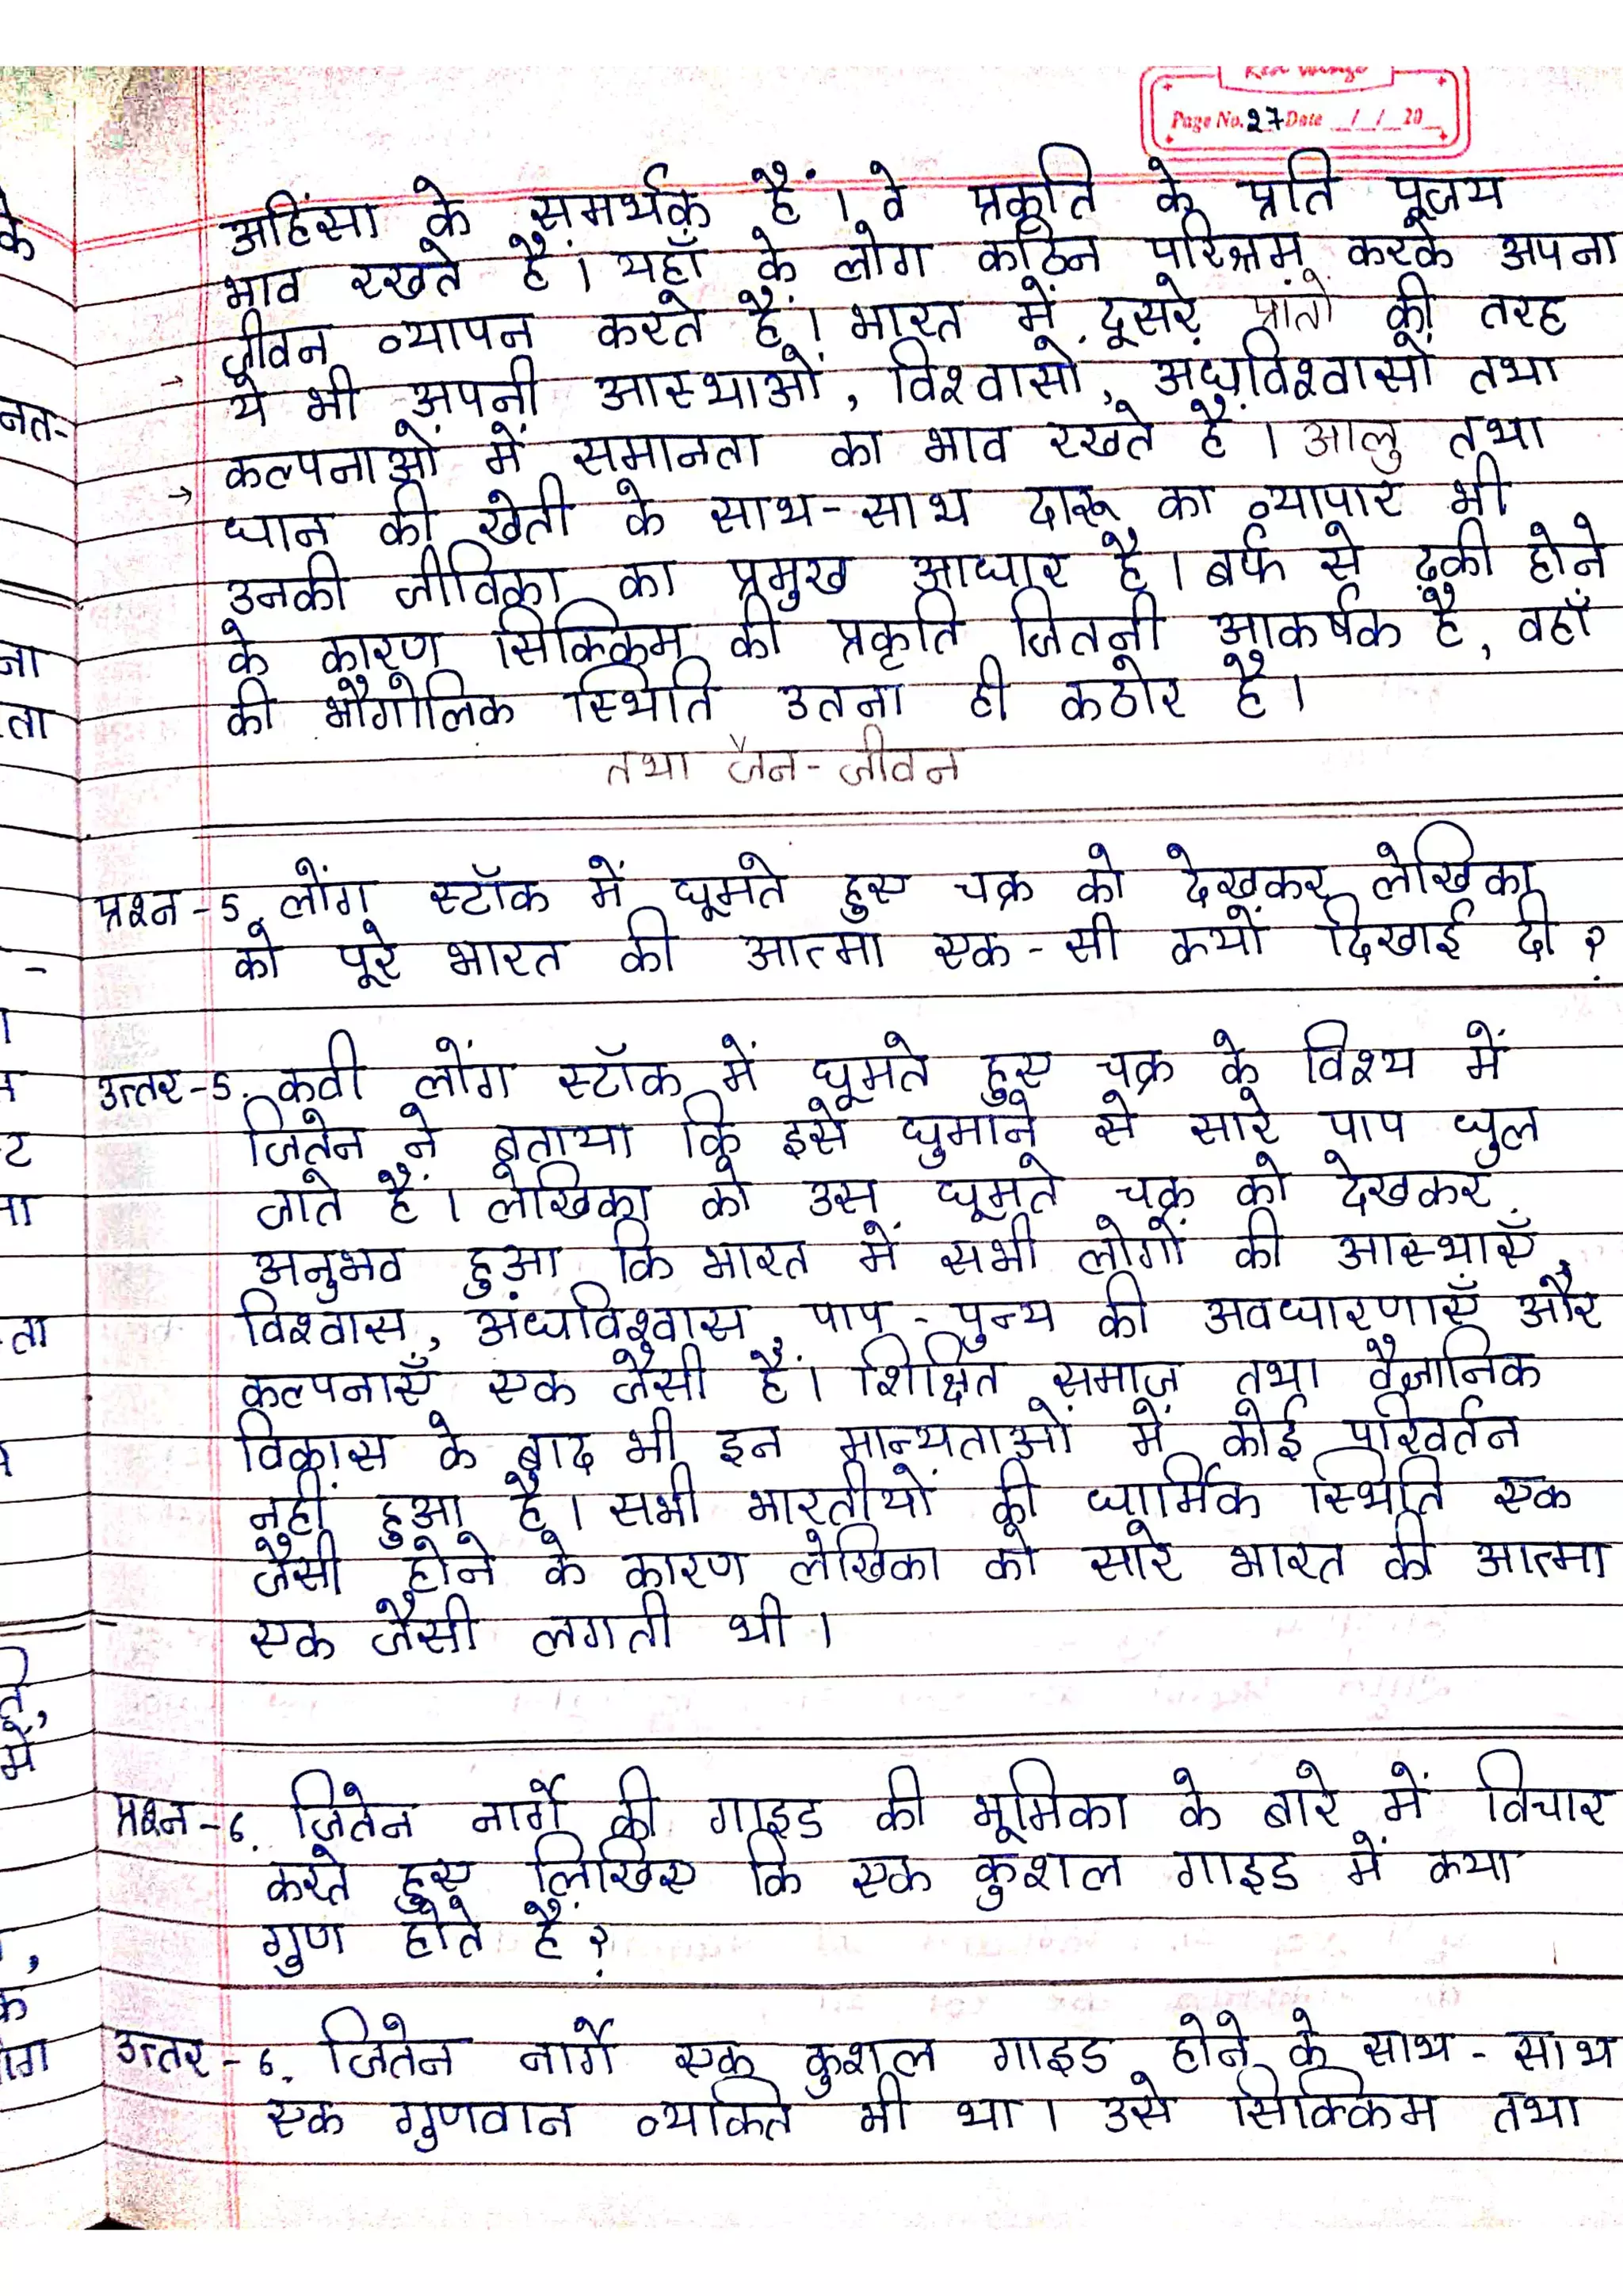 Page No. 27 Date _/_/_20_
अहिंसा के समर्थक हैं। वे प्रकृति के प्रति पूजय
भाव रखते हैं। यहाँ के लोग कठिन परिश्रम करके अपना
जीवन व्यापन करते हैं। भारत में दूसरे प्रांतों की तरह
→ ये भी अपनी आस्थाओं, विश्वासों, अंधविश्वासों तथा
कल्पनाओं में समानता का भाव रखते हैं। आलु तथा
→ धान की खेती के साथ-साथ दारू का व्यापार भी
उनकी जीविका का प्रमुख आधार है। बर्फ से ढ़की होने
के कारण सिक्किम की प्रकृति जितनी आकर्षक है, वहाँ
की भौगोलिक स्थिति उतना ही कठोर है।
तथा जैन-जीवन
प्रश्न-5. लोंग स्टॉक में घूमते हुए चक्र को देखकर लेखिका
को पूरे भारत की आत्मा एक-सी कयों दिखाई दी ?
उत्तर-5. कवी लोंग स्टॉक में घूमते हुए चक्र के विश्य में
जितेन ने बताया कि इसे घुमाने से सारे पाप धुल
जाते हैं। लेखिका को उस घूमते चक्र को देखकर
अनुभव हुआ कि भारत में सभी लोगों की आस्थाएँ,
विश्वास, अंधविश्वास, पाप-पुन्य की अवधारणाएँ और
कल्पनाएँ एक जैसी हैं। शिक्षित समाज तथा वैज्ञानिक
विकास के बाद भी इन मान्यताओं में कोई परिवर्तन
नहीं हुआ है। सभी भारतीयों की धार्मिक स्थिति एक
जैसी होने के कारण लेखिका को सारे भारत की आत्मा
एक जैसी लगती थी।
प्रश्न-6. जितेन नार्गे की गाइड की भूमिका के बारे में विचार
करते हुए लिखिए कि एक कुशल गाइड में कया
गुण होते हैं ?
उत्तर-6. जितेन नार्गे एक कुशल गाइड होने के साथ-साथ
एक गुणवान व्यकित भी था। उसे सिक्किम तथा